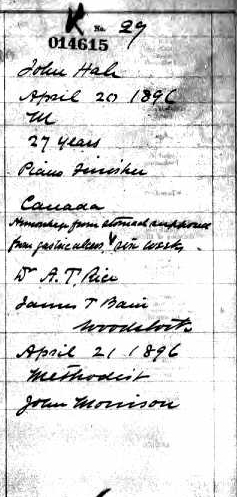 K No. 29
014615
John Hale
April 20 1896
M
27 years
Piano Finisher
Canada
Hemorrhage from stomach supposed
from gastric ulcers six weeks
Dr A. T. Rice
James T Bain
Woodstock
April 21 1896
Methodist
John Morrison